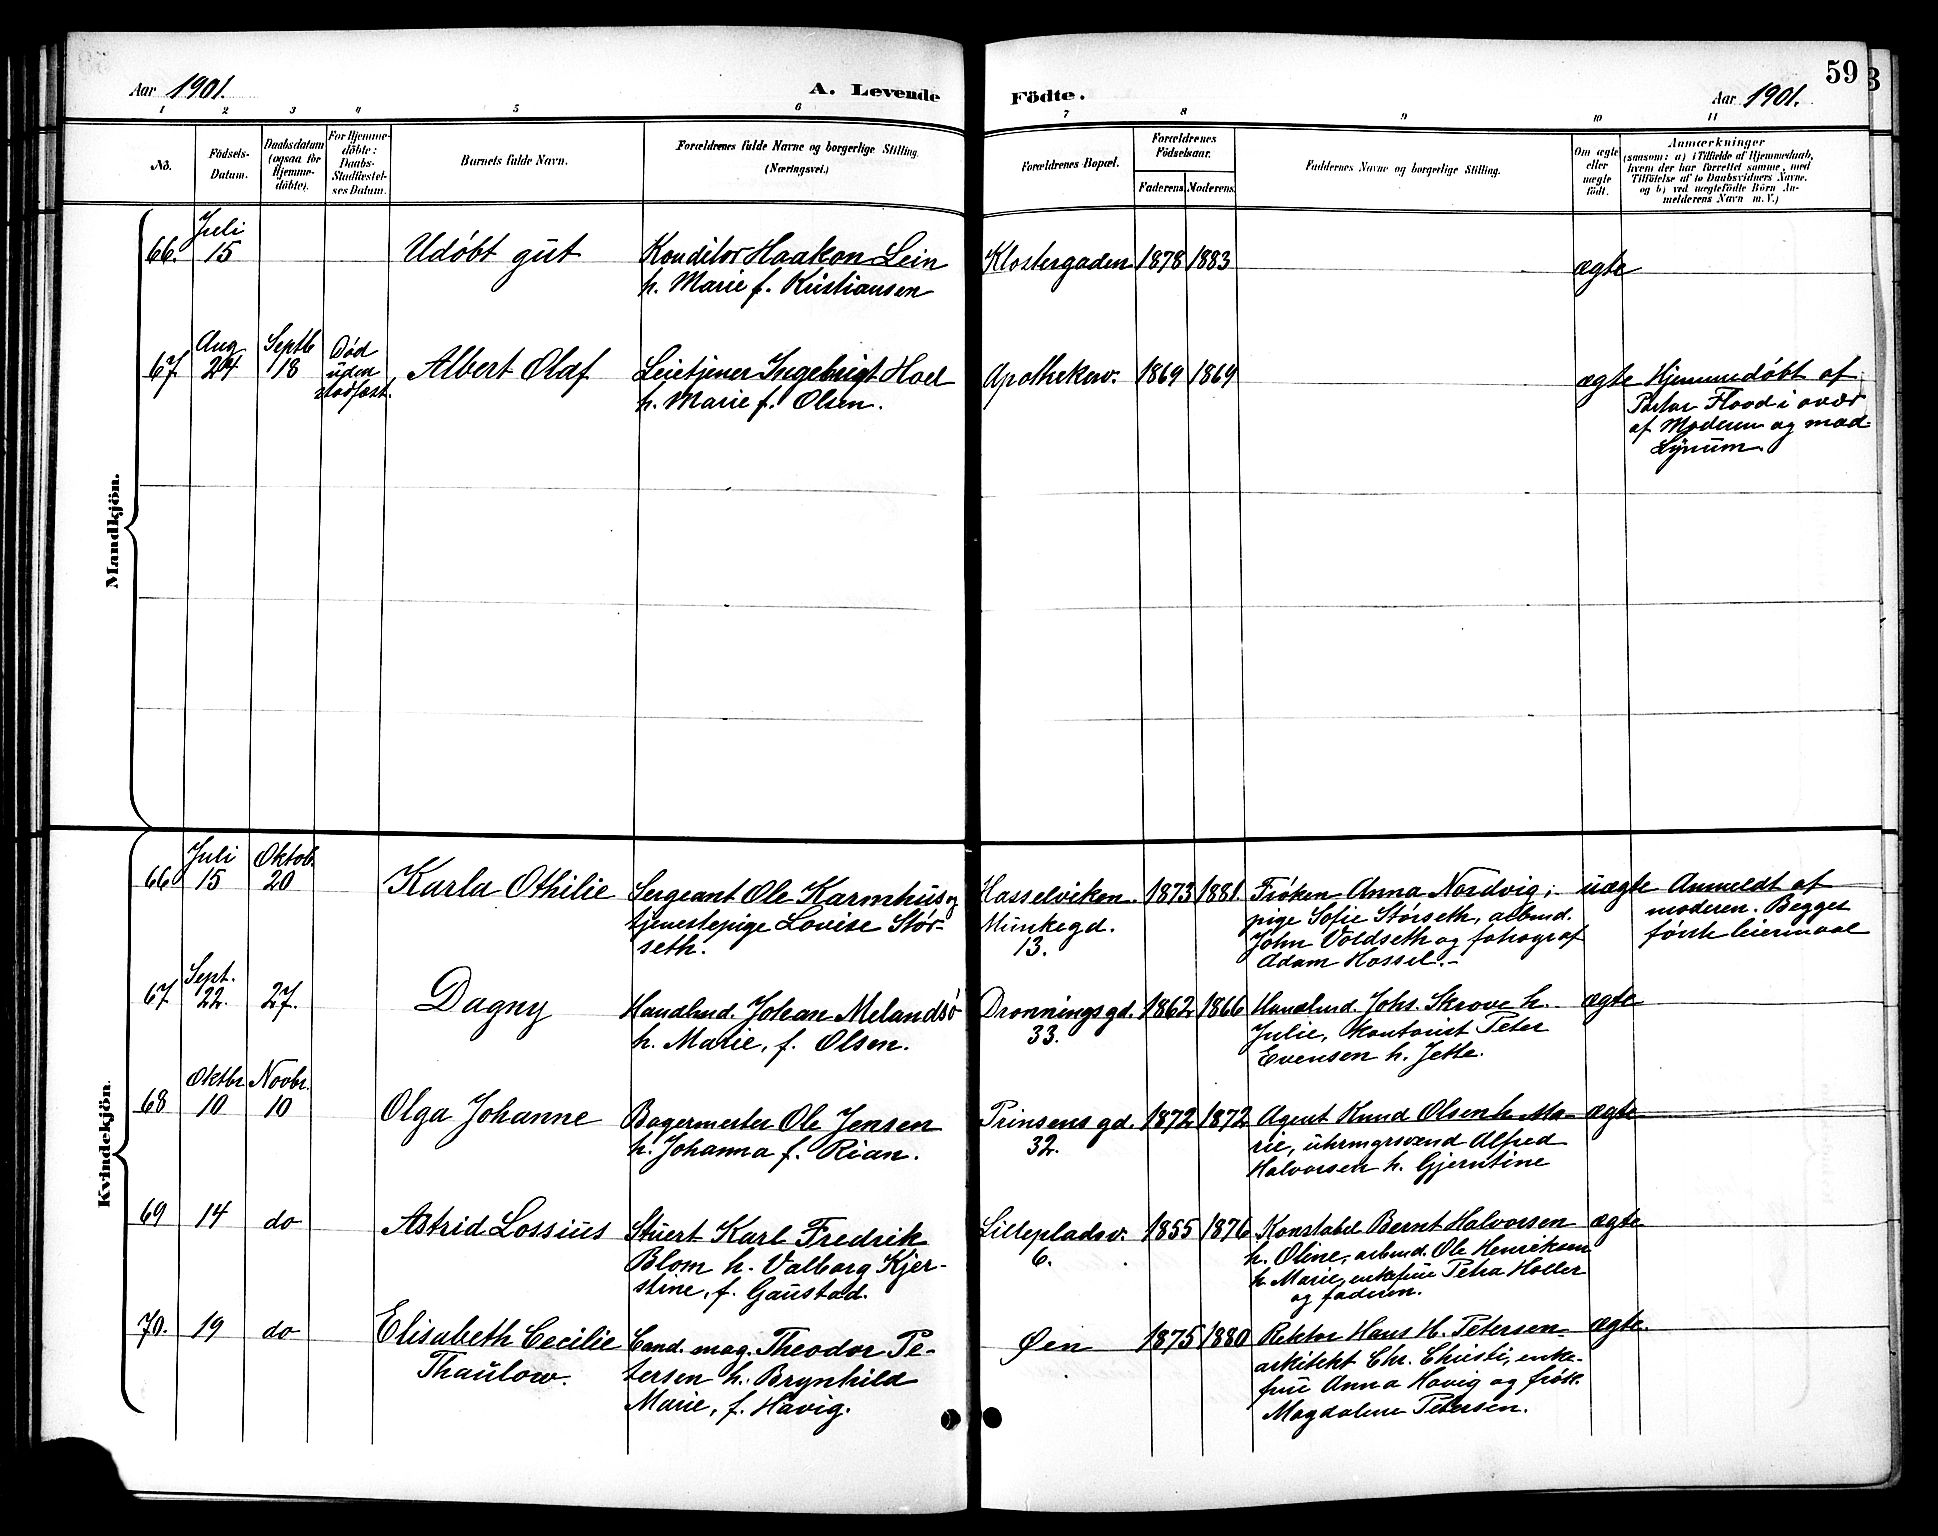 59
Aar 1901. A. Levende Födte. Aar 1901.
1 2 3 4 5 6 7 8 9 10 11
No. Födsels-Datum. Daabsdatum (ogsaa for Hjemme-döbte). For Hjemme-döbte: Daabs-Stadfæstel-ses Datum. Barnets fulde Navn. Forældrenes fulde Navne og borgerlige Stilling. (Næringsvei.) Forældrenes Bopæl. Forældrenes Födselsaar. Faderens. Moderens. Faddernes Navne og borgerlige Stilling. Om ægte eller uægte födt. Anmærkninger
(saasom: a) i Tilfælde af Hjemmedaab,
hvem der har forrettet samme, med
Tilföielse af to Daabsvidners Navne.
og b) ved uegtefödte Börn An-
melderens Navn m. V.)
Mandkjön.
Juli
66. 15 Udøbt gut Konditor Haakon Lein Klostergaden 1878 1883 ægte
h. Marie f. Kristiansen
Aug Septb Død
67. 24 18 uden Albert Olaf Leietjener Ingebrigt Hoel Apothekerv. 1869 1869 ægte Hjemmedøbt af
stadfæst. h. Marie f. Olsen. Pastor Flood i overv
af Moderen og mad.
Lynum.
Kvindekjön.
Juli Oktob.
66 15 20 Karla Othilie Sergeant Ole Karmhus og Hasselviken 1873 1881. Frøken Anna Nordvig, uægte Anmeldt af
tjenestepige Lovise Stør- Munkegd. pige Sofie Størseth, arbmd. moderen. Begges
seth. 13. John Voldseth og fotograf første leiermaal
Adam Hassel.-
Sept.
67 22. 27. Dagny Handlmd. Johan Melandsø Dronningsgd. 1862 1866 Handlmd. Johs. Skrove h. ægte
h. Marie, f. Olsen. 33. Julie, kontorist Peter
Evensen h. Jette.
Oktbr Novbr.
68 10 10 Olga Johanne Bagermester Ole Jensen Prinsensgd. 1872 1872 Agent Knud Olsen h. Ma- ægte
h. Johanna f. Rian. 32. rie, uhrmgrsvend Alfred
Halvorsen h. Gjerntine
69 14 do Astrid Lossius Stuert Karl Fredrik Lillepladsv. 1855 1876 Konstabel Bernt Halvorsen ægte
Blom h. Valborg Kjer- 6. h. Oline, arbmd. Ole Henriksen
stine, f. Gaustad. h. Marie, enkefrue Petra Holler
og faderen.
70. 19 do Elisabeth Cecilie Cand. mag. Theodor Pe- Øen 1875 1880 Rektor Hans H. Petersen ægte.
Thaulow. tersen h. Brynhild arkitekt Chr. Christi, enke-
Marie, f. Havig. frue Anna Havig og frøk.
Magdalene Petersen.